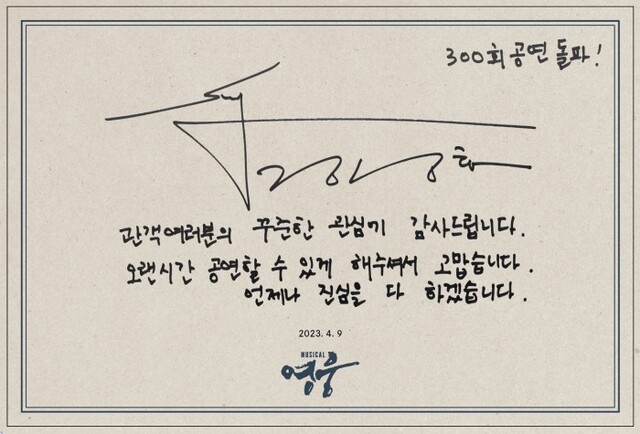 300회 공연 돌파!
관객여러분의 꾸준한 관심에 감사드립니다.
오랜시간 공연할 수 있게 해주셔서 고맙습니다.
언제나 진심을 다 하겠습니다.
2023. 4. 9
MUSICAL
영웅